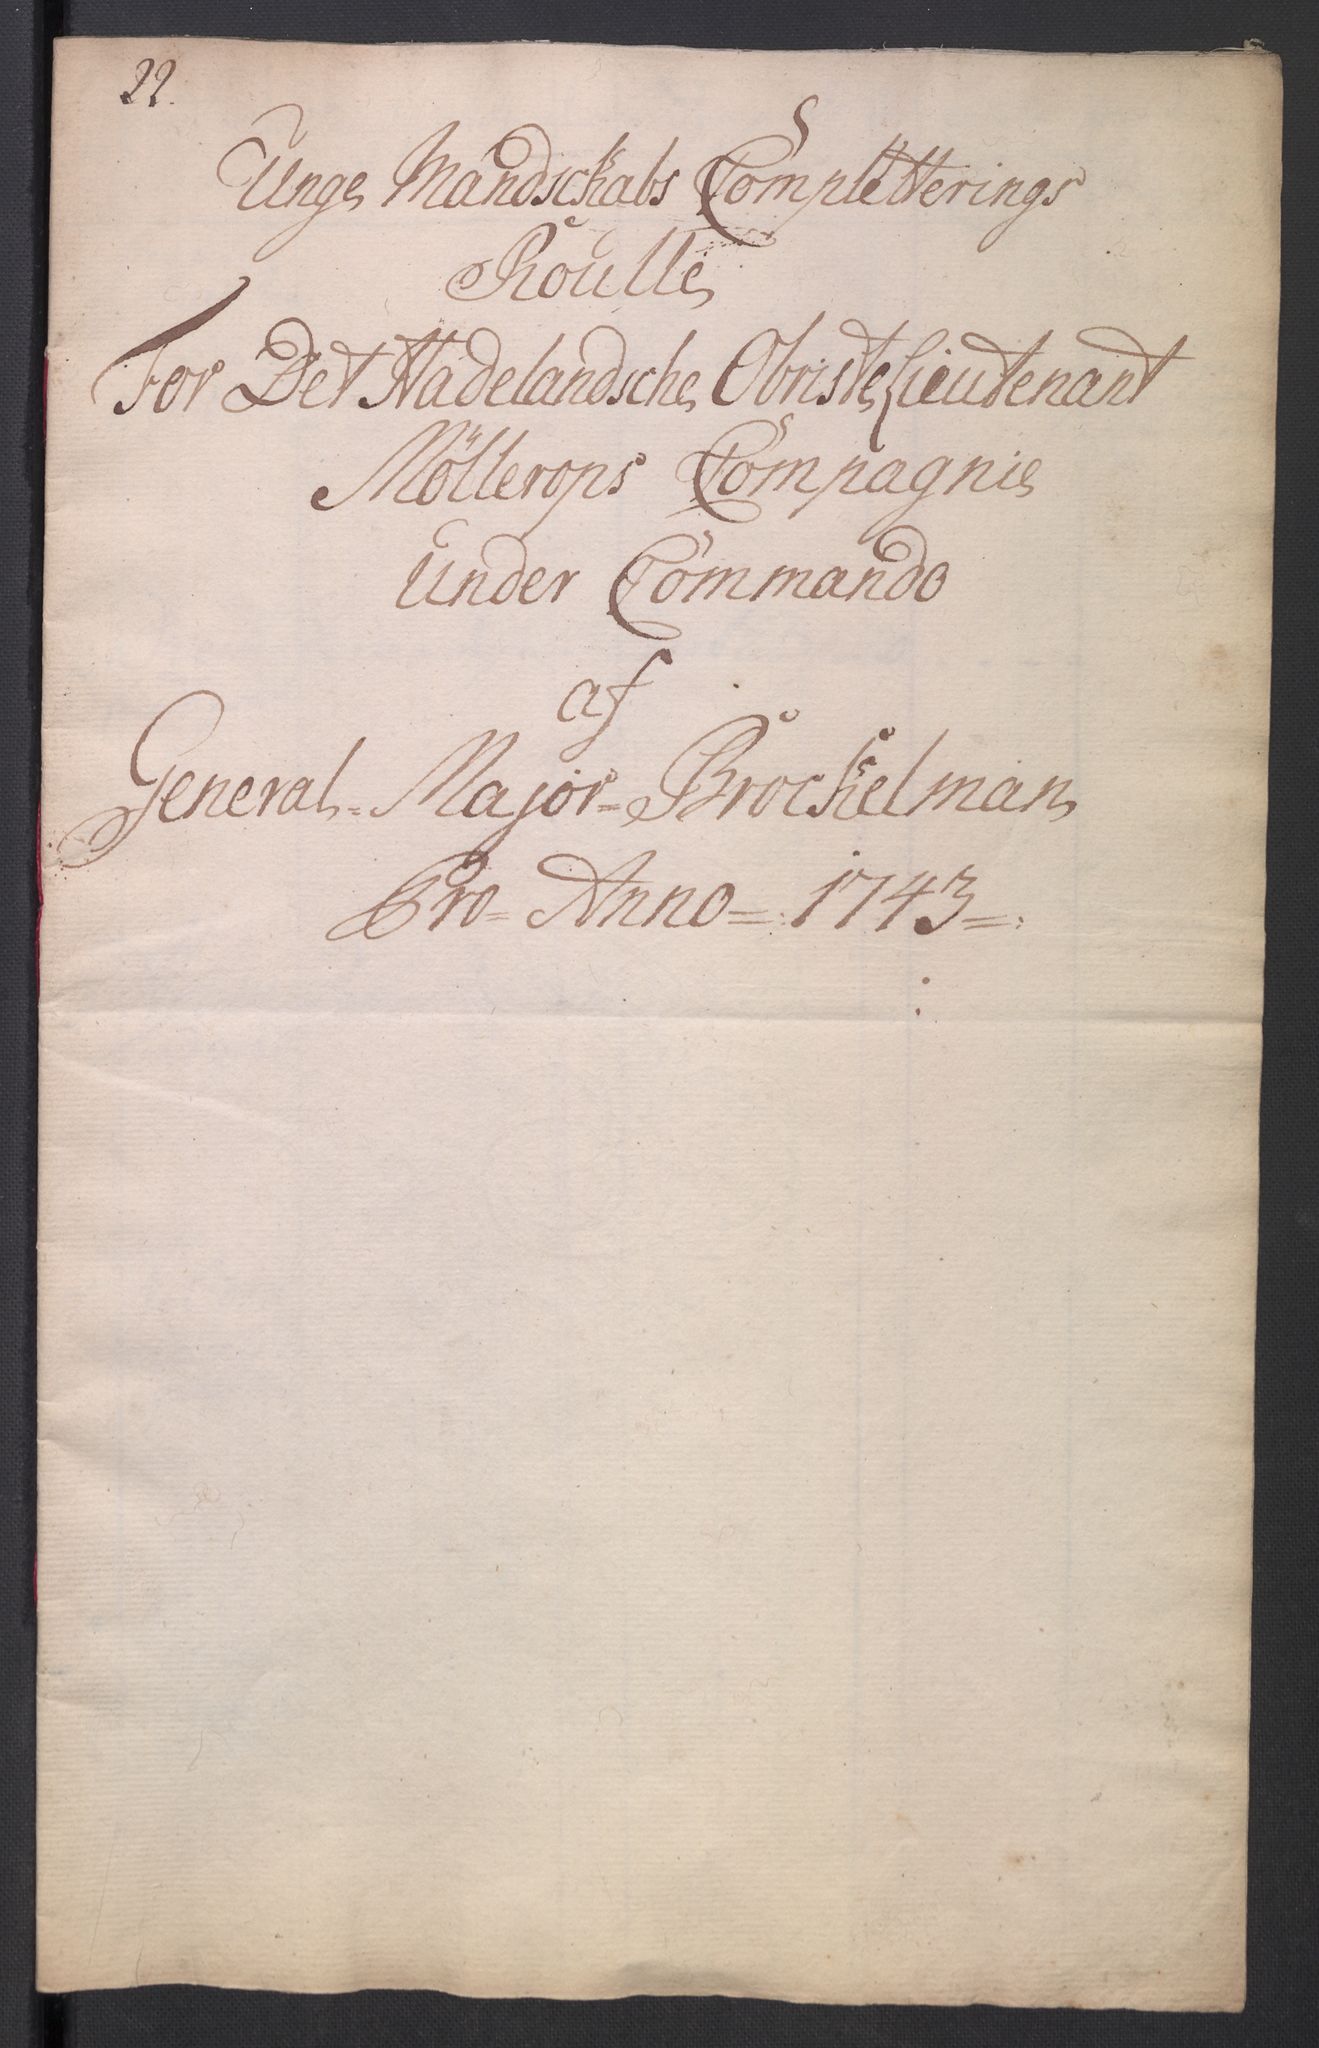 22.
Unge Mandskabs Completterings
Roulle
For Det Hadelandsche Obriste Lieutenant
Möllerops Compagnie
Under Commando
af
General-Major-Brockelman
Pro-Anno-1743-